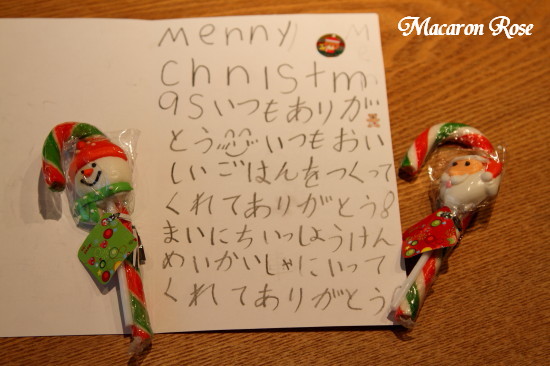 Macaron Rose
merry
christm
asいつもありが
とう いつもおい
しいごはんをつくって
くれてありがとう8
まいにちいっしょうけん
めいかいしゃにいって
くれてありがとう